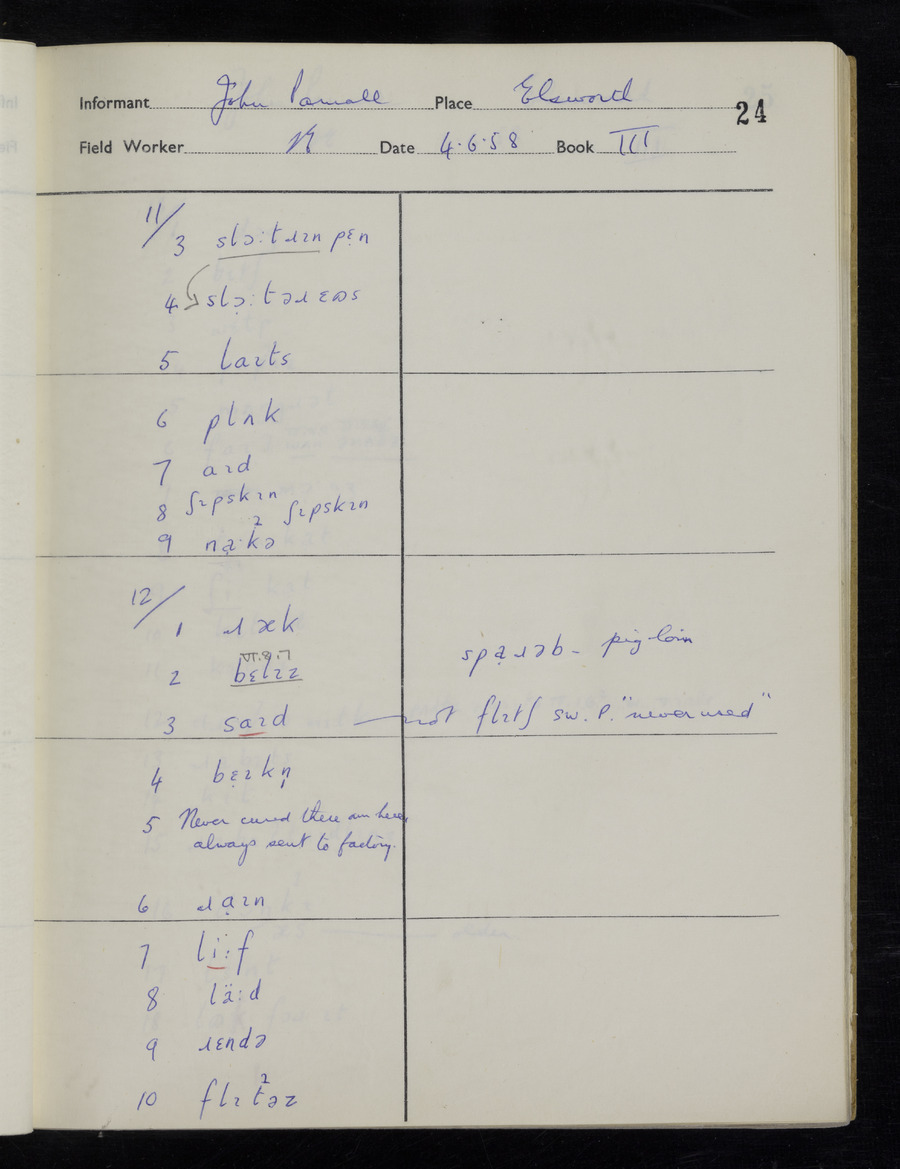 Informant John Parnall Place Elsworth
24
Field Worker Date 4.6.58 Book III
11/
3 slɔ:tɹɪn pɛn
4 slɔ:təɹ ɛʊs
5 laɪts
6 plʌk
7 aɪd
8 ʃɪpskɪn ² ʃɪpskɪn
9 na̤·kə
12/
1 ɹæk
spa̤ɹəb - pig-loin
VI.8.7
2 bɛlɪz
3 saɪd — not flɪtʃ sw. P. "never used"
4 bɛɪkn̩
5 Never cured there am here,
always sent to factory.
6 ɹa̤ɪn
7 li:f
8 lä:d
9 ɹɛndə
10 flɪt²əz